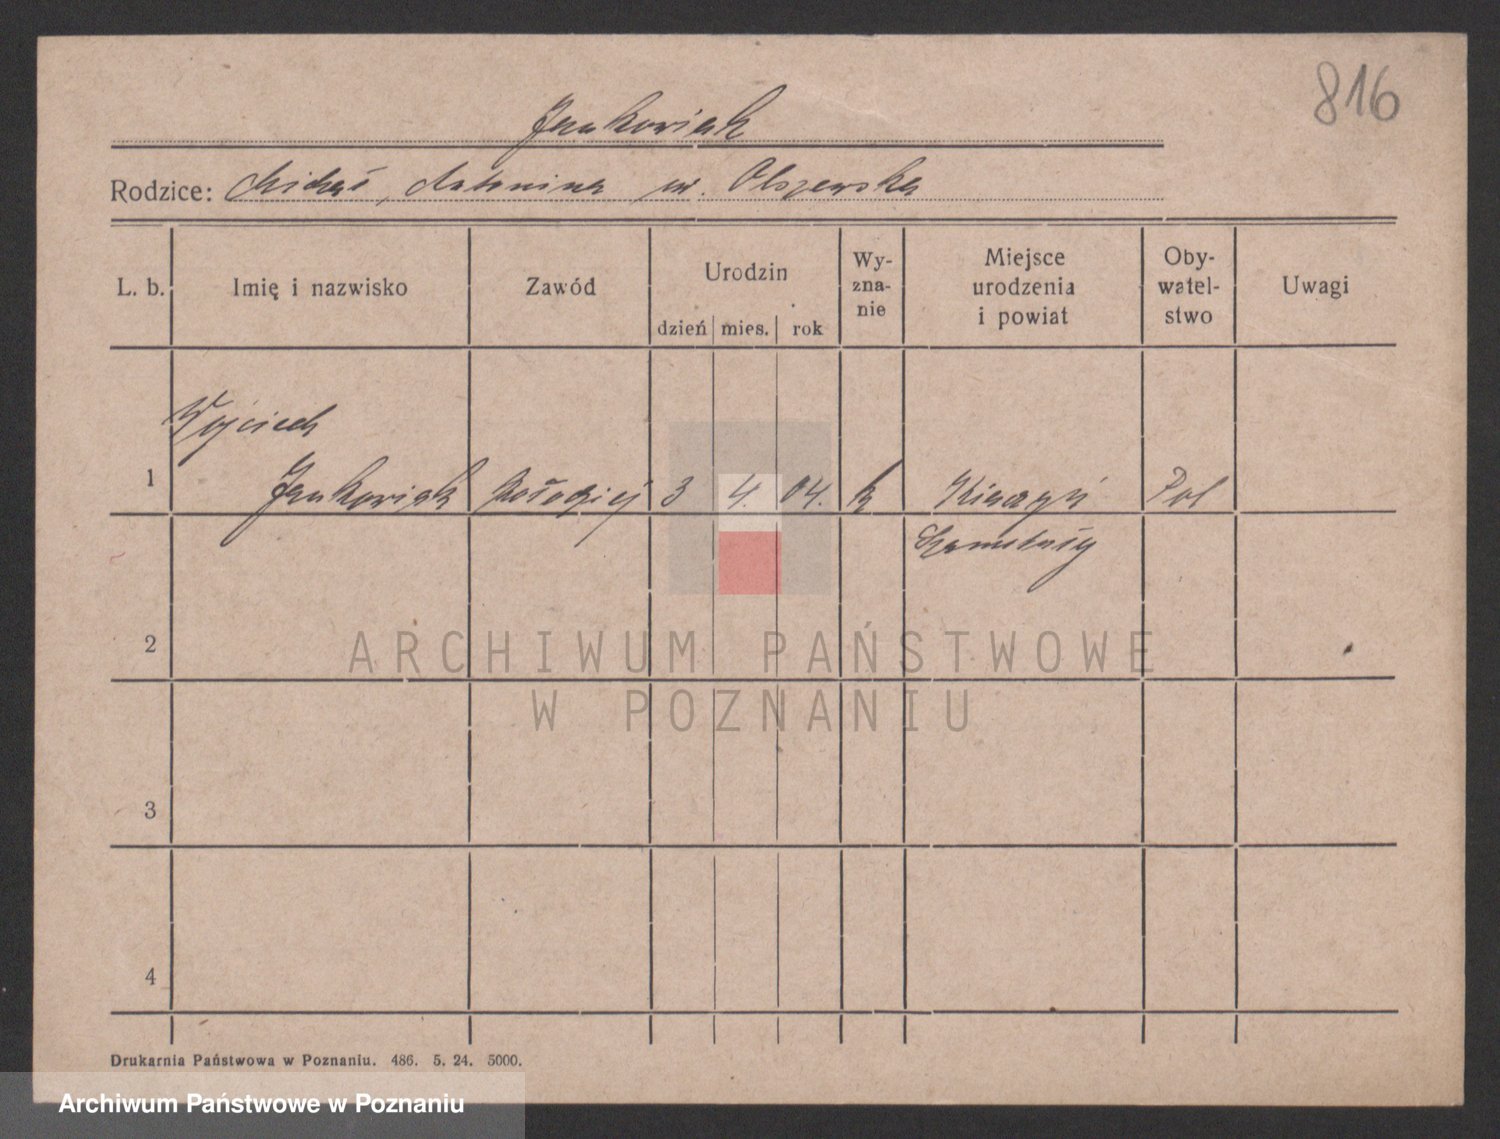 816
Jankowiak
Rodzice: Michał, Antonina ur. Olszewska
L. b. Imię i nazwisko Zawód Urodzin Wy-zna-nie Miejsce urodzenia i powiat Oby-watel-stwo Uwagi
dzień mies. rok
Wojciech
1 Jankowiak Kołodziej 3 4. 04. k Kiączyń Pol
Szamotuły
2
ARCHIWUM PAŃSTWOWE
W POZNANIU
3
4
Drukarnia Państwowa w Poznaniu. 486. 5. 24. 5000.
Archiwum Państwowe w Poznaniu